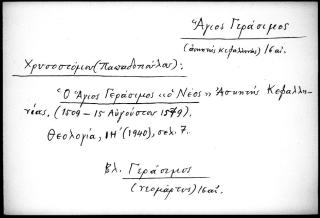 Ἅγιος Γεράσιμος
(ἀσκητὴς Κεφαλληνίας) 16 αἰ.
Χρυσοστόμου (Παπαδοπούλου):
Ὁ Ἅγιος Γεράσιμος «ὁ Νέος» Ἀσκητὴς Κεφαλλη-
νίας. (1509 - 15 Αὐγούστου 1579).
Θεολογία, ΙΗ' (1940), σελ. 7.
Βλ. Γεράσιμος
(νεομάρτυς) 16 αἰ.